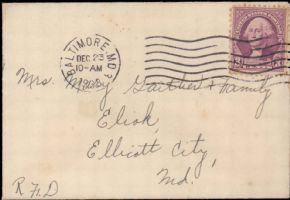 BALTIMORE, MD.
DEC 23
10-AM
Mrs. Mary Gaither & Family
Eliok,
Ellicott City,
Md.
R.F.D